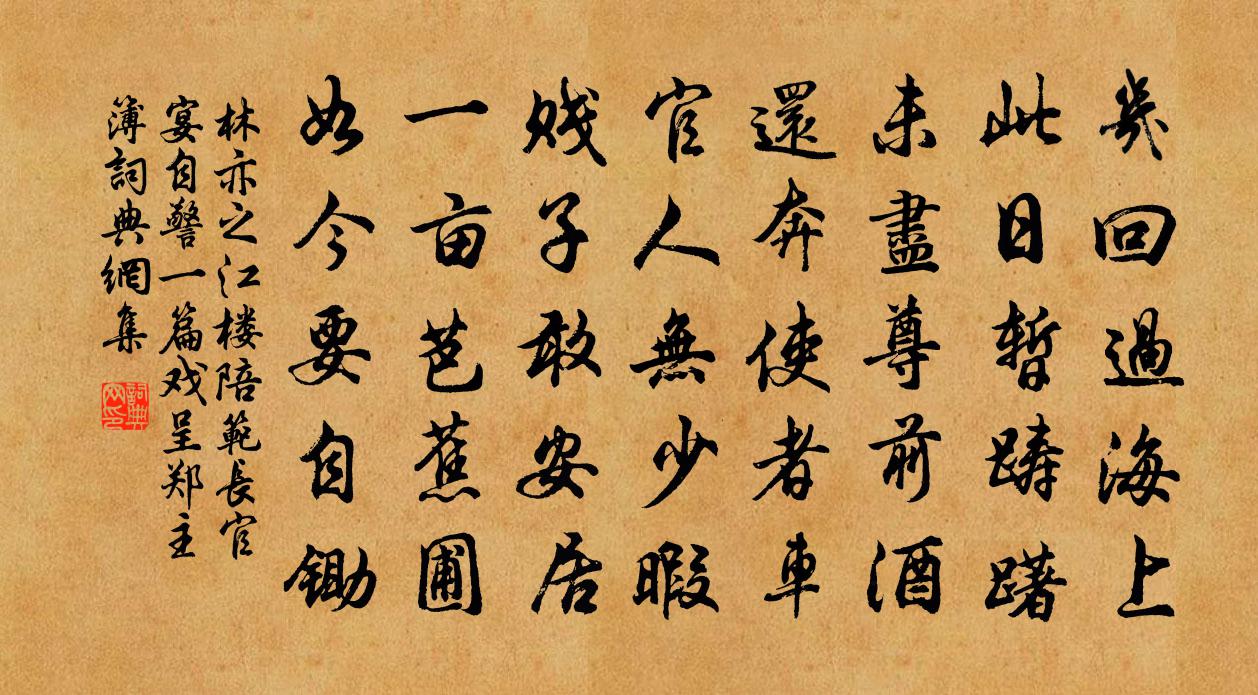 幾回過海上
此日暫踌躇
未盡尊前酒
還奔使者車
官人無少暇
贱子敢安居
一亩芭蕉圃
如今要自鋤
林亦之江楼陪範長官
宴自警一篇戏呈郑主
簿詞典網集
詞典网印